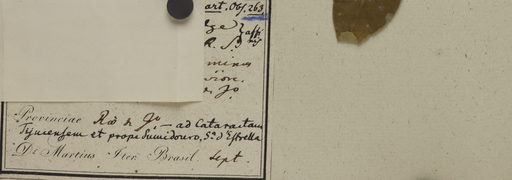 art. 06/.263
ge } affi
R. S. B
minus
R. Jo.
Provinciae Rio de Jo. — ad Cataractam
Tijucensem et prope Sumidouro, Sa. d'Estrella
Dr. Martius Iter Brasil. Sept.